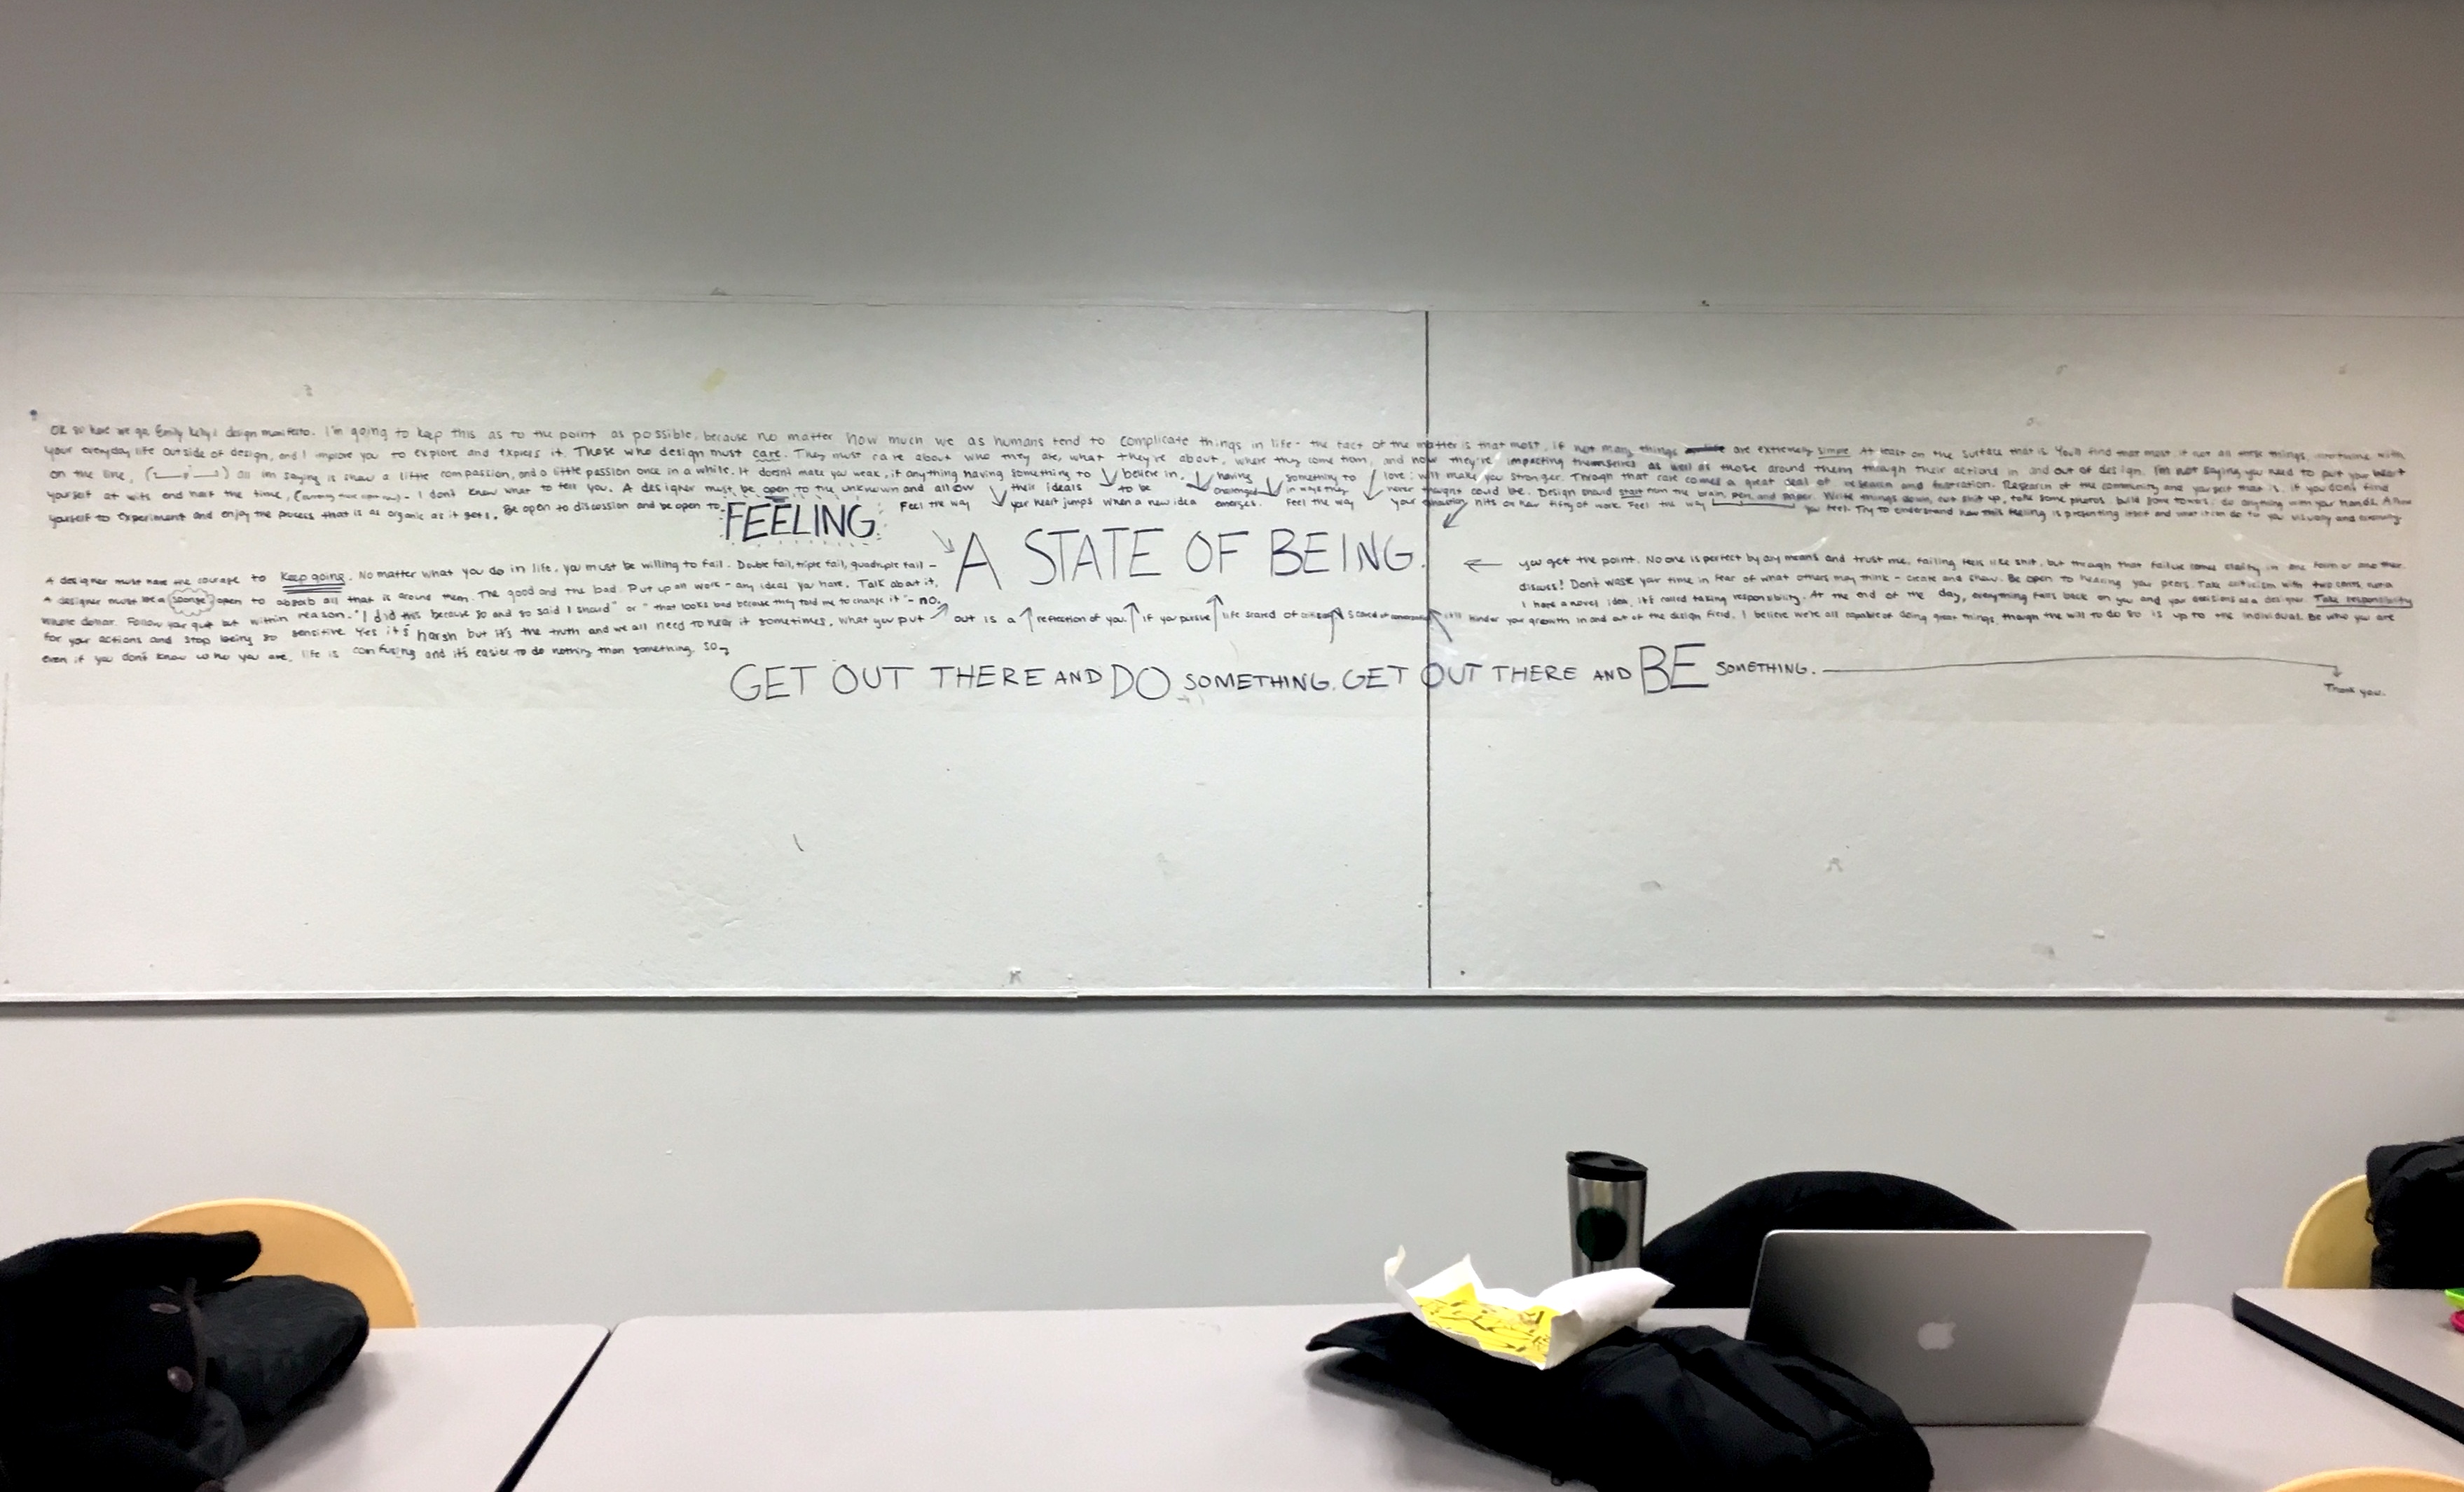 OK so here we go Emily Kelly's design manifesto. I'm going to keep this as to the point as possible, because no matter how much we as humans tend to complicate things in life - the fact of the matter is that most, if not many things are extremely simple. At least on the surface that is. You'll find that most, if not all these things, with
your everyday life outside of design, and I implore you to explore and express it. Those who design must care. They must care about who they are, what they're about, where they come from, and how they're impacting themselves as well as those around them through their actions in and out of design. I'm not saying you need to put your heart
on the line, all im saying is show a little compassion, and a little passion once in a while. It doesn't make you weak, if anything having something to believe in, having something to love; will make you stronger. Through that care comes a great deal of research and Research of the community and yourself that is, if you don't find
yourself at wits end half the time, - I don't know what to tell you. A designer must be open to the unknown and allow their ideals to be changed in ways they never thought could be. Design should start from the brain, pen, and paper. Write things down, cut shit up, take some photos, build some towers, do anything with your hands. Allow
yourself to experiment and enjoy the process that is as organic as it gets. Be open to discussion and be open to FEELING. Feel the way your heart jumps when a new idea emerges. Feel the way your hits on hour fifty of work. Feel the way you feel. Try to understand how this feeling is presenting itself and what it can do to you visually and
A STATE OF BEING.
A designer must have the courage to Keep going. No matter what you do in life, you must be willing to fail. Double fail, triple fail, quadruple fail - you get the point. No one is perfect by any means and trust me, failing feels like shit, but through that failure comes clarity in one form or another.
A designer must be a sponge open to absorb all that is around them. The good and the bad. Put up all work - any ideas you have. Talk about it, discuss! Don't waste your time in fear of what others may think - create and show. Be open to hearing your peers. Take criticism with two cents not a
whole dollar. Follow your gut but within reason. "I did this because so and so said I should" or "that looks bad because they told me to change it" - no. I have a novel idea, it's called taking responsibility. At the end of the day, everything falls back on you and your decisions as a designer. Take responsibility
for your actions and stop being so sensitive. Yes it's harsh but it's the truth and we all need to hear it sometimes, what you put out is a reflection of you, if you pursue life scared of scared of it'll hinder your growth in and out of the design field. I believe we're all capable of doing great things, though the will to do so is up to the individual. Be who you are
even if you don't know who you are, life is confusing and it's easier to do nothing than something. SO
GET OUT THERE AND DO SOMETHING. GET OUT THERE AND BE SOMETHING.
Thank you.